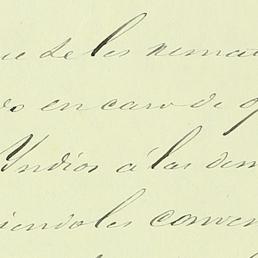 de les remat
do en caso de q
Yndios á las dem
iendoles conven